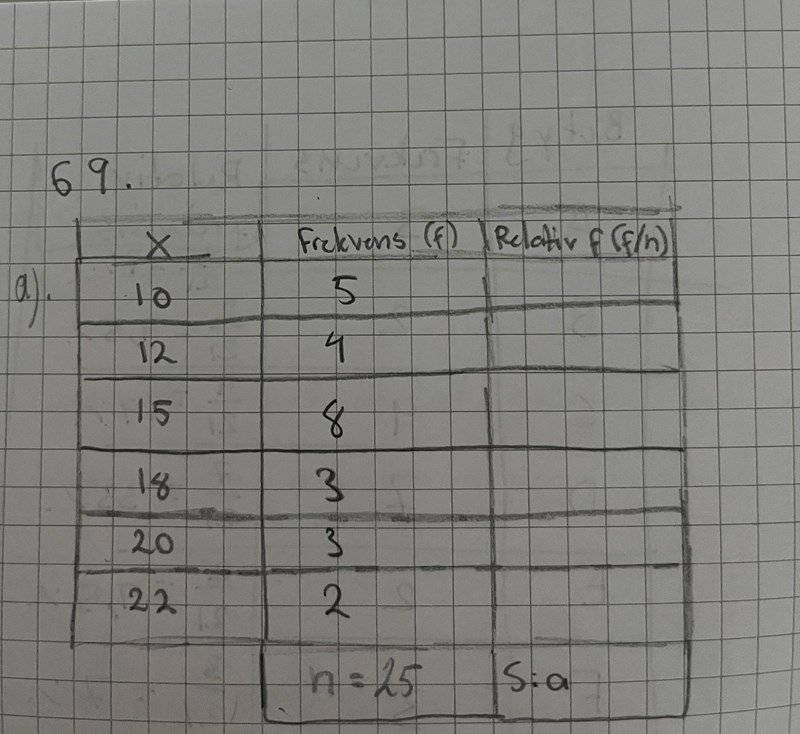 69.
X Frekvens (f) Relativ f (f/n)
a). 10 5
12 4
15 8
18 3
20 3
22 2
n = 25 S:a